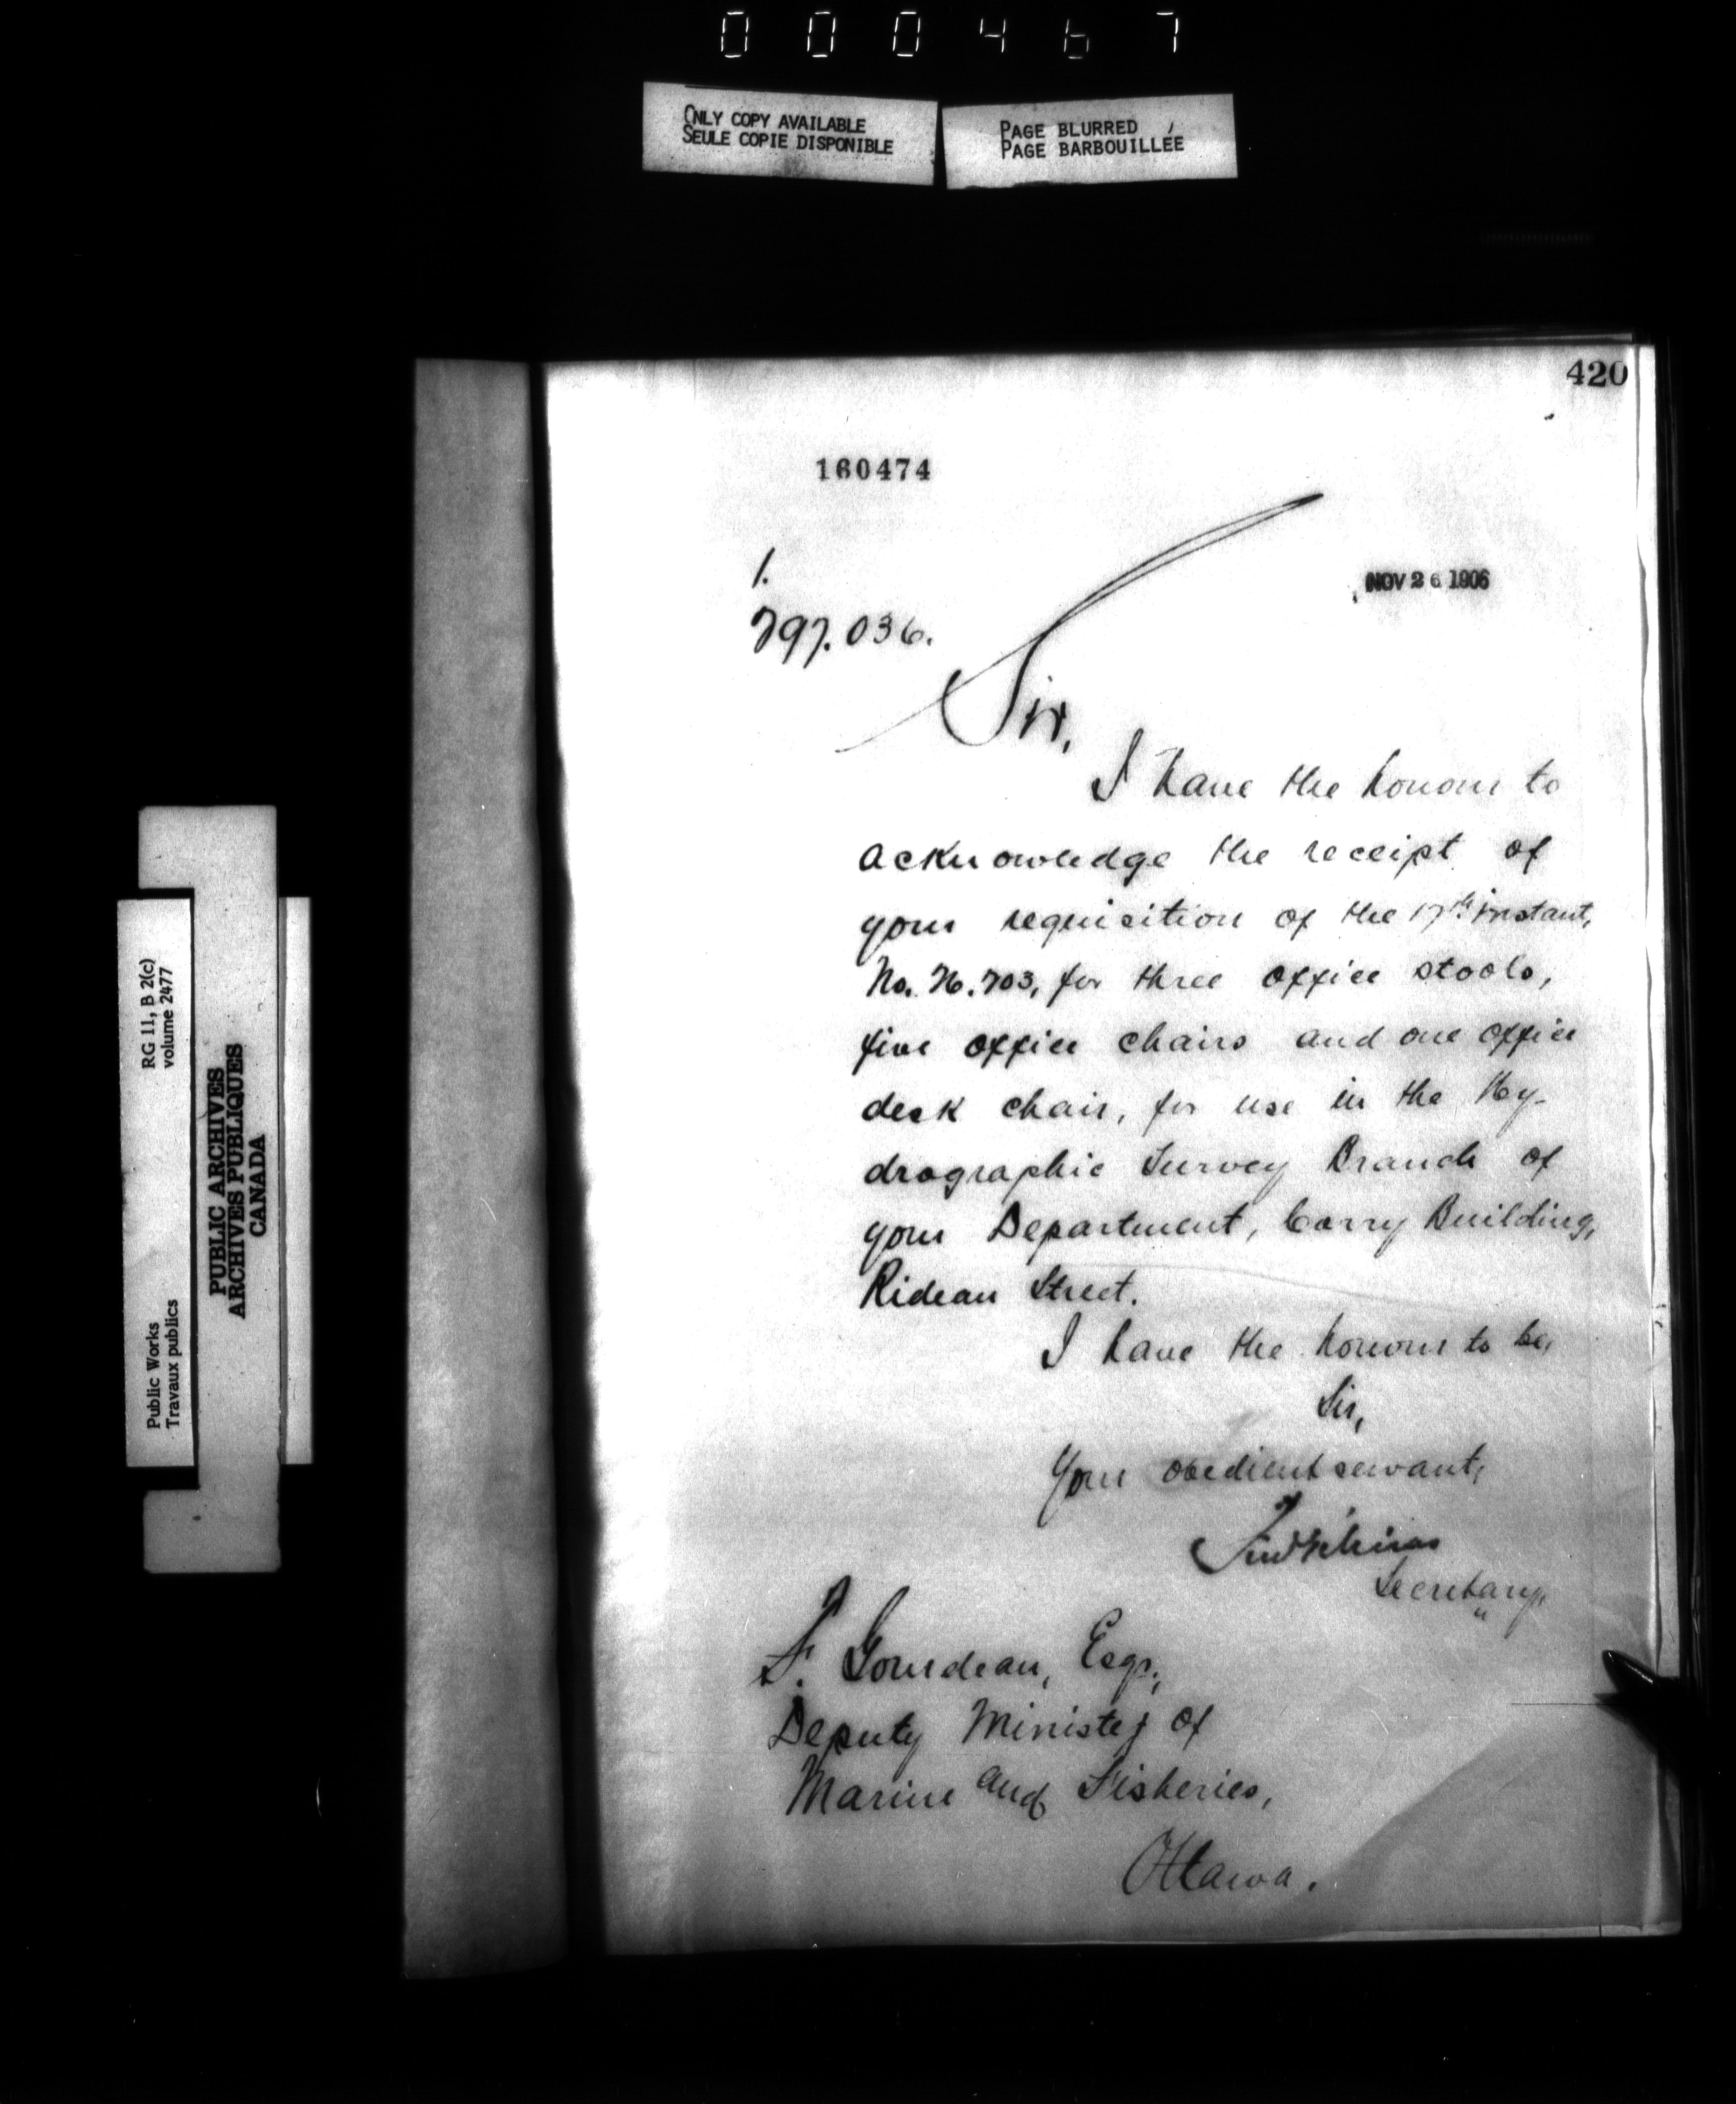 000467
ONLY COPY AVAILABLE
SEULE COPIE DISPONIBLE
PAGE BLURRED
PAGE BARBOUILLÉE
420
160474
1.
797.036.
NOV 26 1906
Sir,
I have the honour to
acknowledge the receipt of
your requisition of the 17th instant,
No. 76.703, for three office stools,
five office chairs and one office
desk chair, for use in the Hy-
drographic Survey Branch of
your Department, Corry Building,
Rideau Street.
I have the honour to be,
Sir,
Your obedient servant,
Secretary.
F. Gourdeau, Esqr.,
Deputy Minister of
Marine and Fisheries,
Ottawa.
RG 11, B 2(c)
volume 2477
PUBLIC ARCHIVES
ARCHIVES PUBLIQUES
CANADA
Public Works
Travaux publics